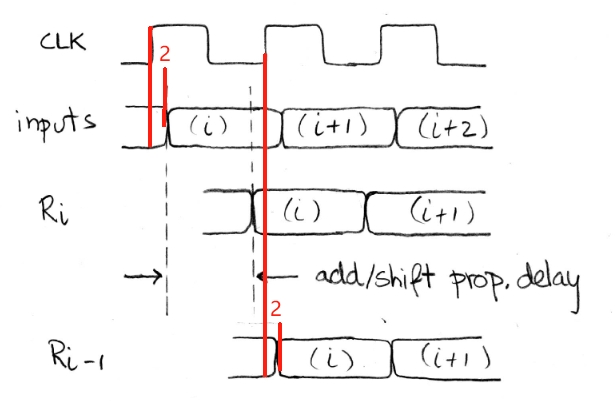 CLK
2
inputs (i) (i+1) (i+2)
Ri (i) (i+1)
add/shift prop. delay
2
Ri-1 (i) (i+1)